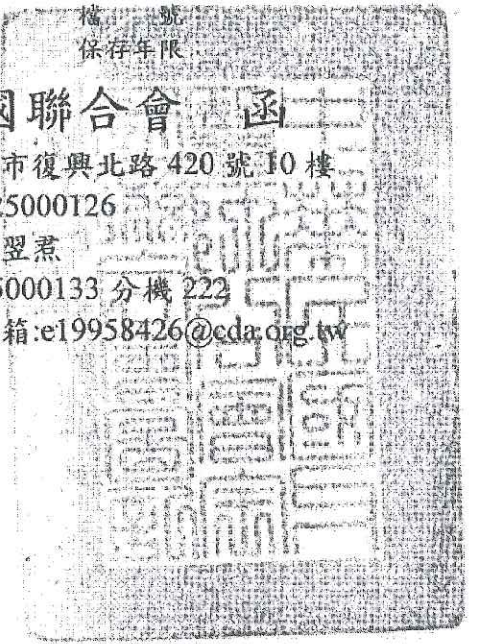 檔　號
保存年限：
國聯合會　函
市復興北路 420 號 10 樓
25000126
翌焄
5000133 分機 222
箱:e19958426@cda.org.tw